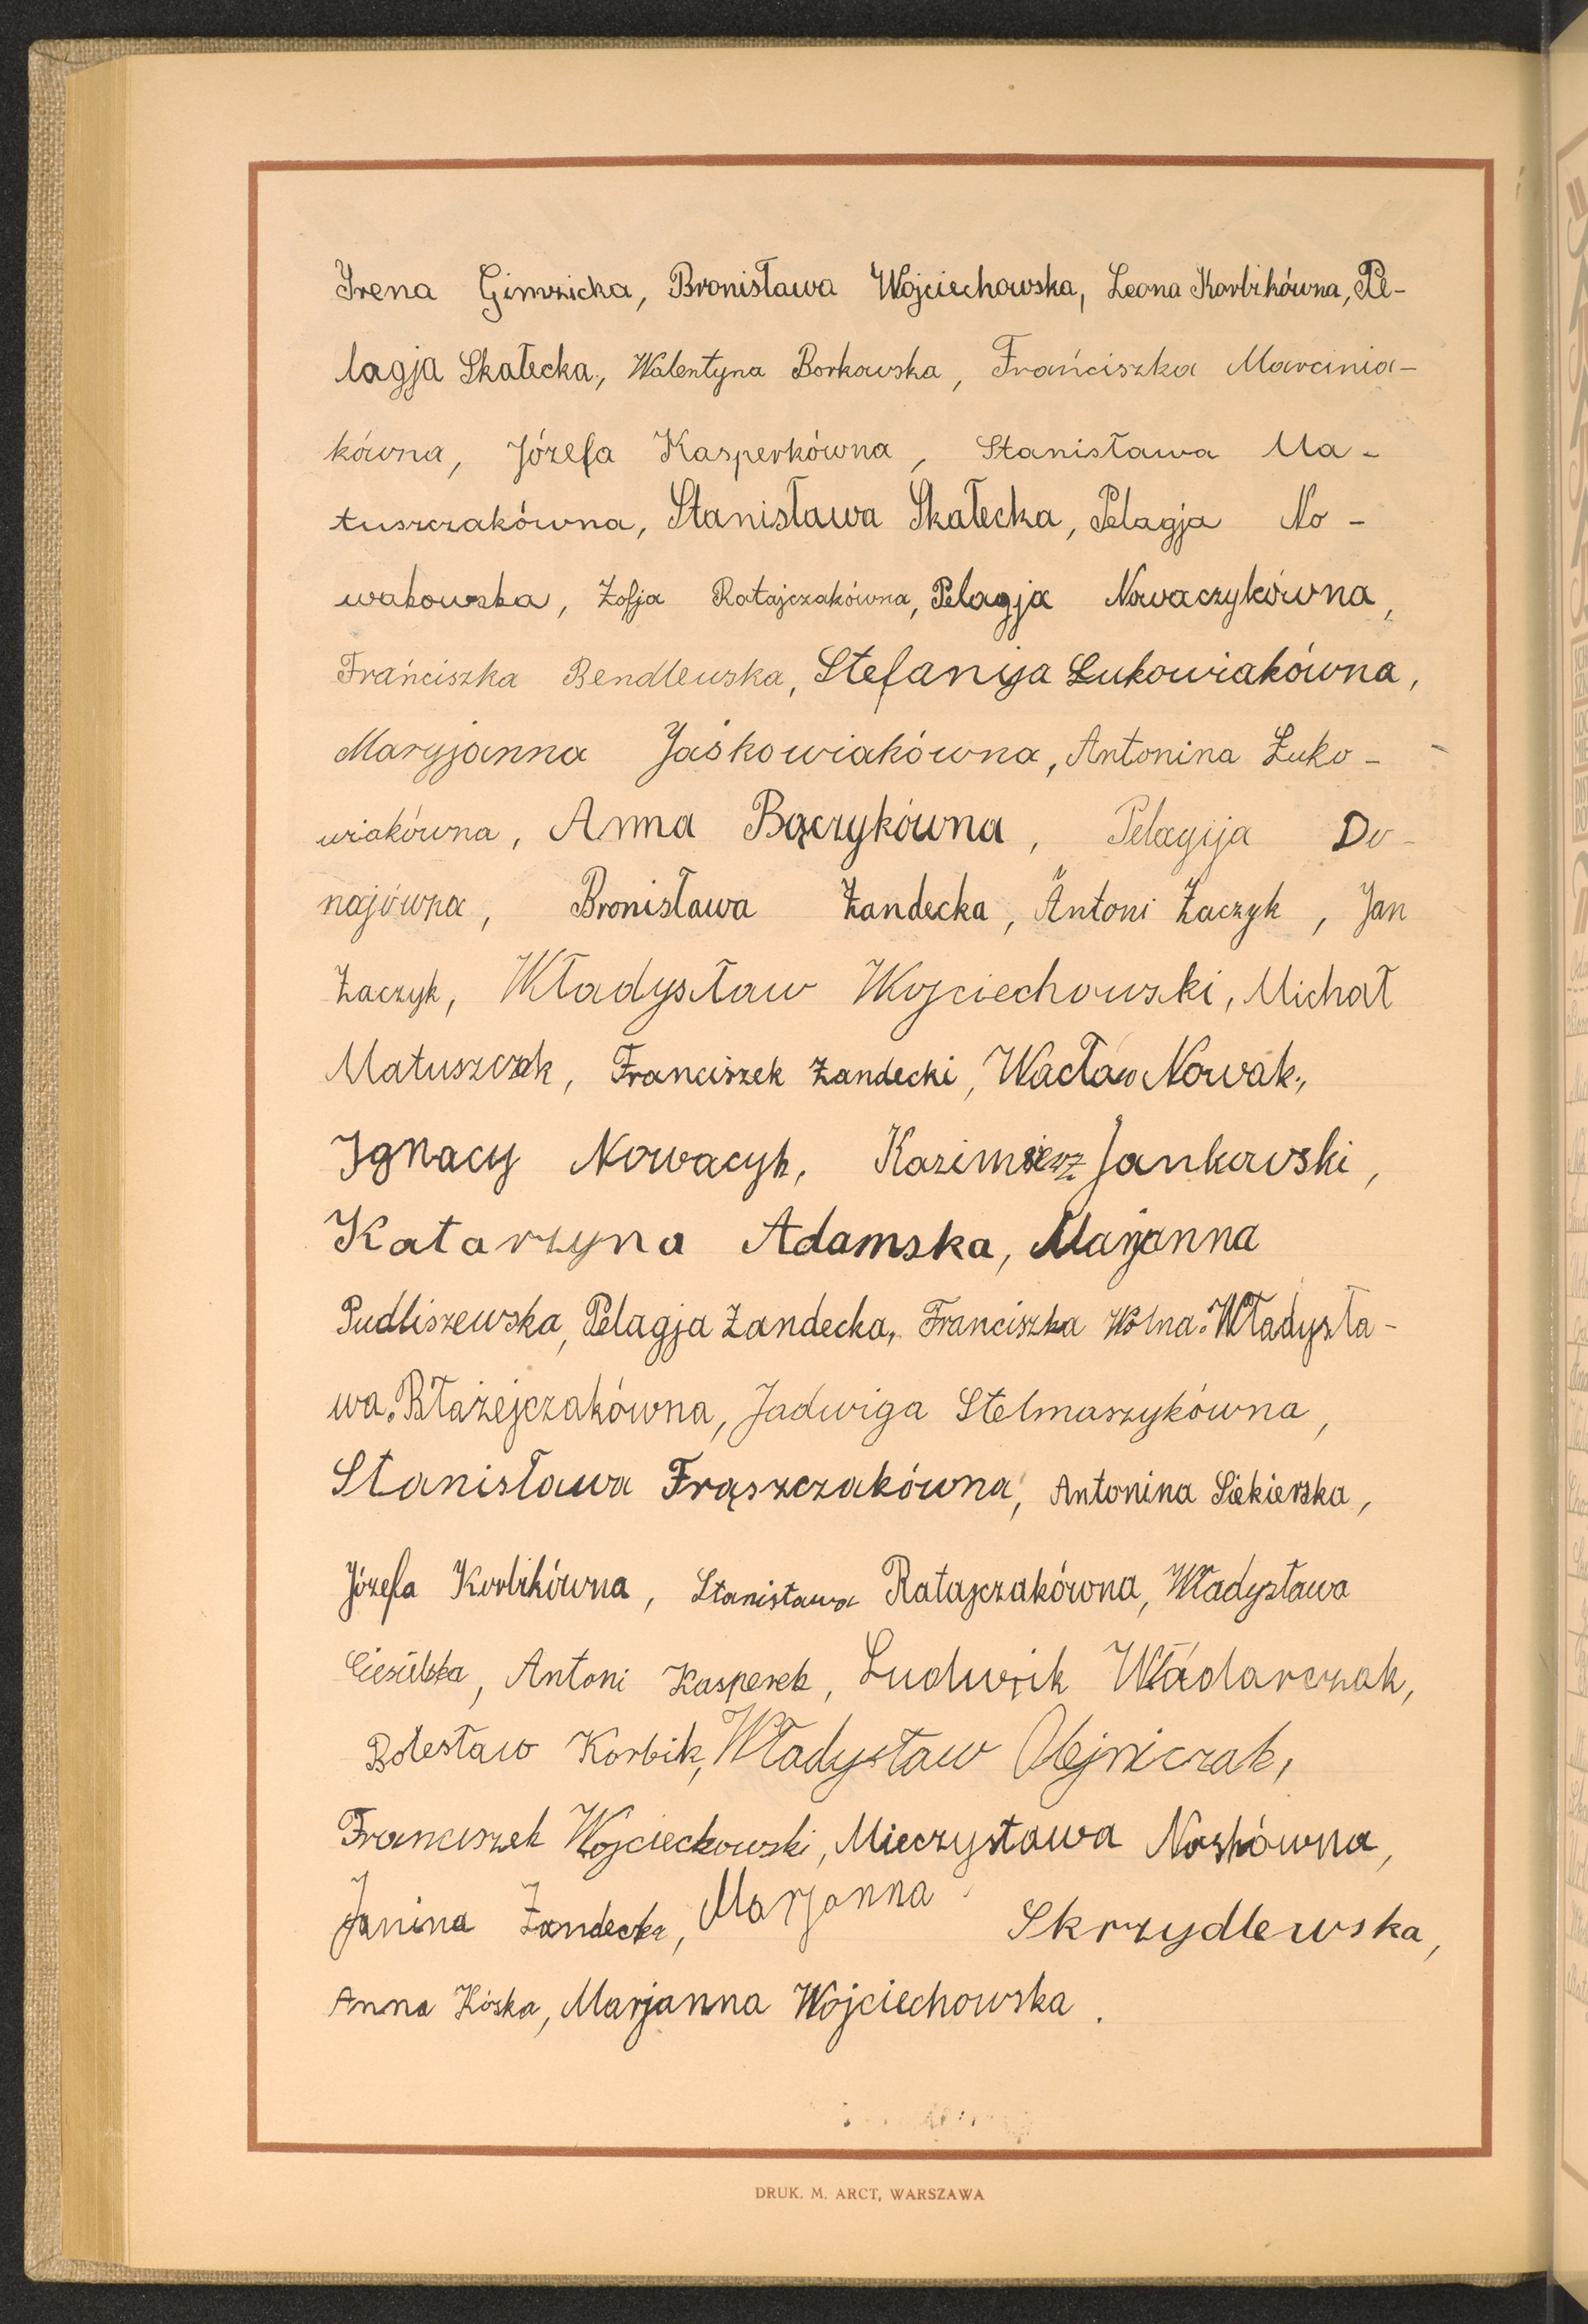 Irena Gimzicka, Bronisława Wojciechowska, Leona Korbikówna, Pe-
lagja Skałecka, Walentyna Borkowska, Frańciszka Marcinia-
kówna, Józefa Kasperkówna, Stanisława Ma-
tuszczakówna, Stanisława Skałecka, Pelagja No-
wakowska, Zofja Ratajczakówna, Pelagja Nowaczykówna,
Frańciszka Bendlewska, Stefanija Łukowiakówna,
Maryjanna Jaśkowiakówna, Antonina Łuko-
wiakówna, Anna Bączykówna, Pelagija Do-
najówna, Bronisława Żandecka, Antoni Żaczyk, Jan
Żaczyk, Władysław Wojciechowski, Michał
Matuszczak, Franciszek Żandecki, Wacław Nowak,
Ignacy Nowacyk, Kazimierz Jankowski,
Katarzyna Adamska, Marjanna
Pudliszewska, Pelagja Żandecka, Franciszka Wolna. Władysła-
wa. Błażejczakówna, Jadwiga Stelmaszykówna,
Stanisława Frąszczakówna, Antonina Siekierska,
Józefa Korbikówna, Stanisława Ratajczakówna, Władysława
Ciesielska, Antoni Kasperek, Ludwik Włádarczak,
Bolesław Korbik, Władysław Olejniczak,
Franciszek Wojciechowski, Mieczysława Noskówna,
Janina Żandecka, Marjanna Skrzydlewska,
Anna Kóska, Marjanna Wojciechowska.
DRUK. M. ARCT, WARSZAWA